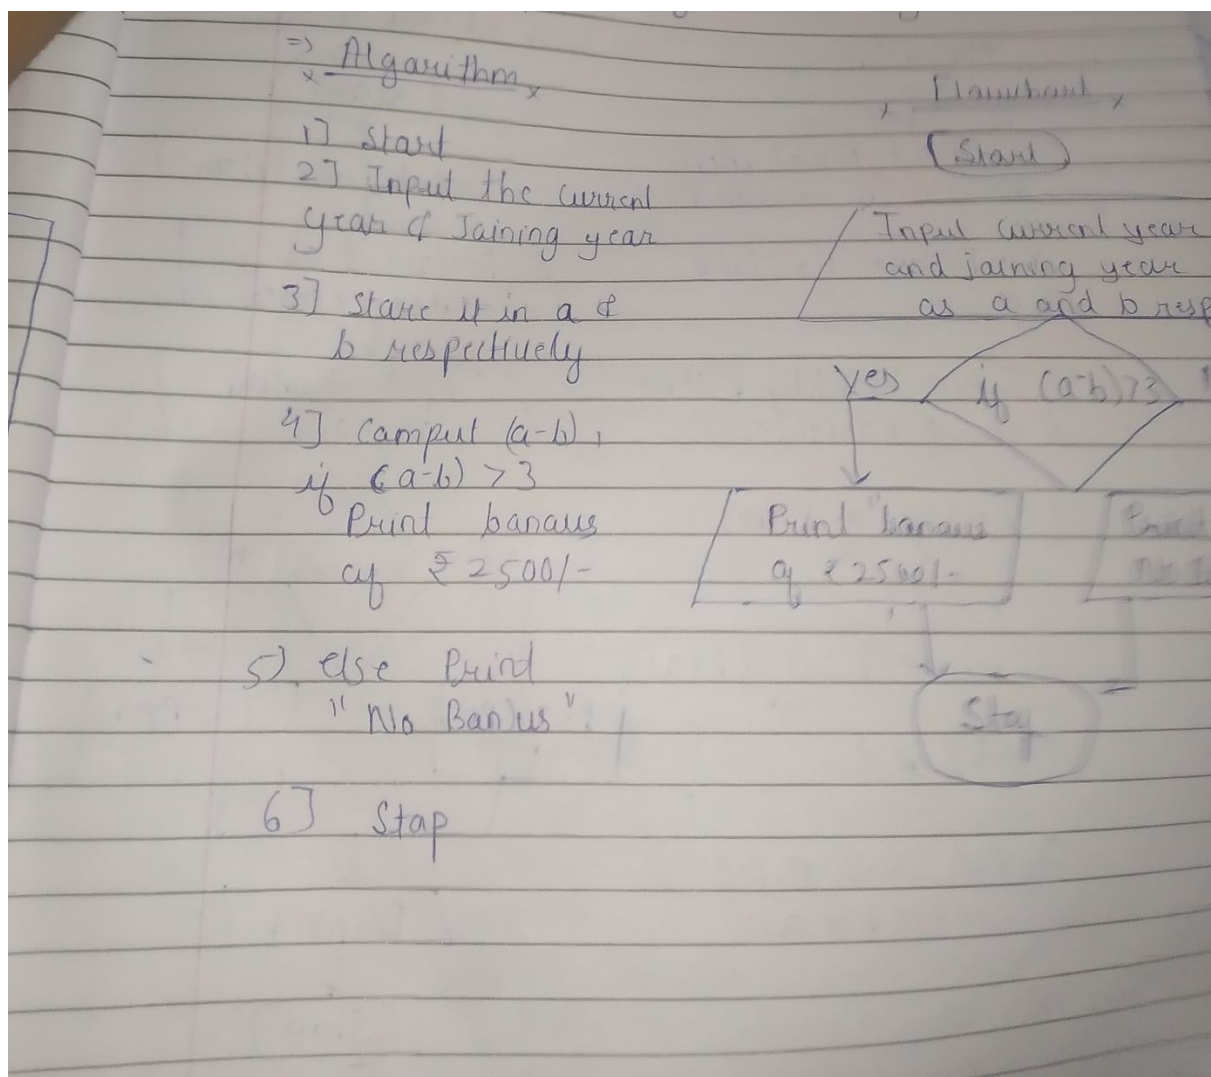 => Algarithm
1] Start
2] Input the current
year & Jaining year
3] Stare it in a &
b respectively
4] Camput (a-b),
if (a-b) >3
Print banaus
af ₹2500/-
5) else Print
"No Banus".
6] Stap
Flawchart
Start
Input current year
and jaining year
as a and b resp
if (a-b)>3
yes
Print "banaus
af ₹2500/-
Stap